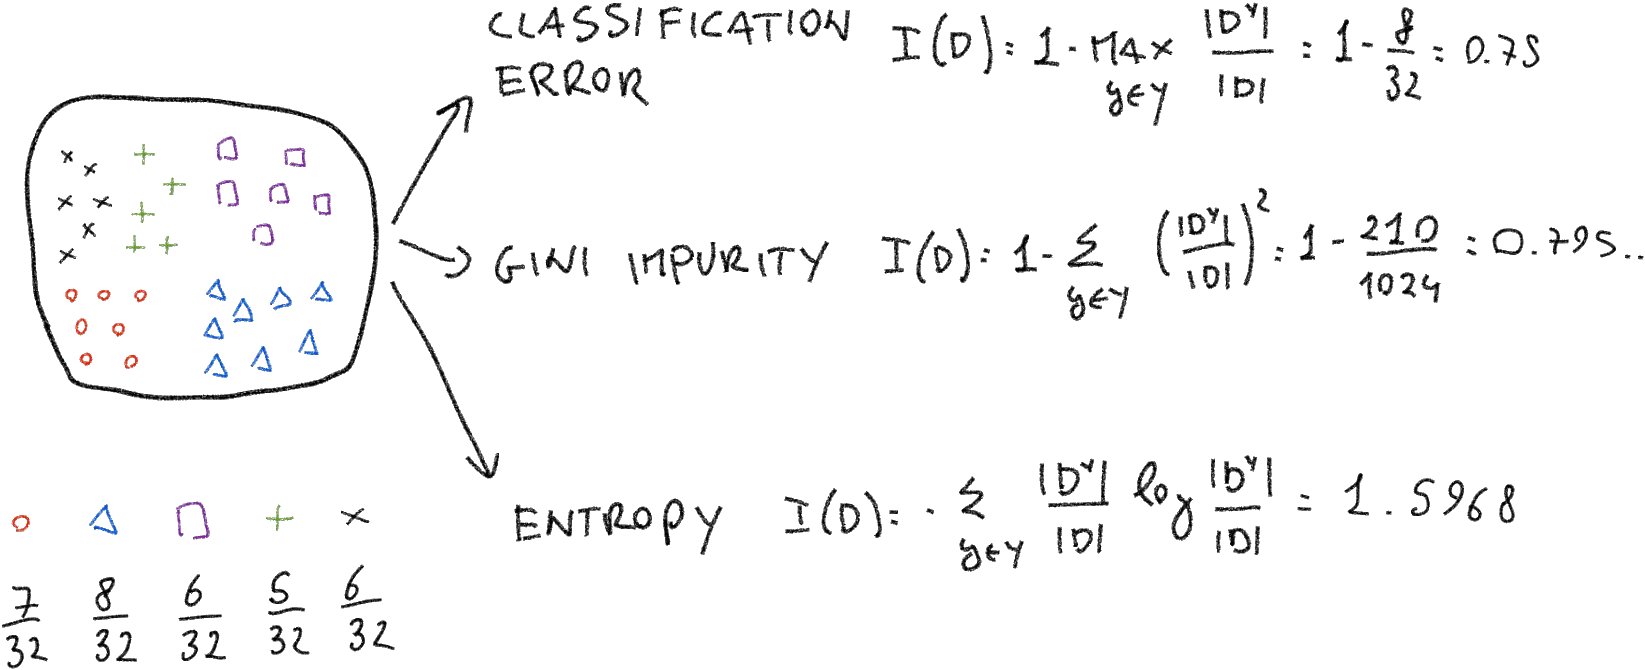 CLASSIFICATION ERROR I(D) = 1 - MAX y∈Y |D^Y| / |D| = 1 - 8/32 = 0.75
GINI IMPURITY I(D) = 1 - Σ y∈Y (|D^Y| / |D|)^2 = 1 - 210/1024 = 0.795..
ENTROPY I(D) = - Σ y∈Y |D^Y| / |D| log |D^Y| / |D| = 1.5968
7/32 8/32 6/32 5/32 6/32